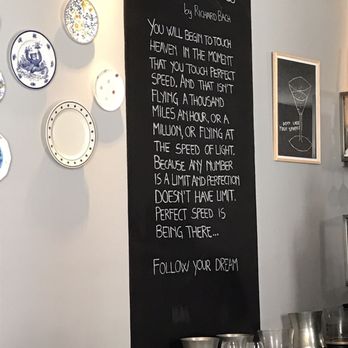 by RICHARD BACH
YOU WILL BEGIN TO TOUCH
HEAVEN IN THE MOMENT
THAT YOU TOUCH PERFECT
SPEED. AND THAT ISN'T
FLYING A THOUSAND
MILES AN HOUR, OR A
MILLION, OR FLYING AT
THE SPEED OF LIGHT.
BECAUSE ANY NUMBER
IS A LIMIT AND PERFECTION
DOESN'T HAVE LIMIT.
PERFECT SPEED IS
BEING THERE...
FOLLOW YOUR DREAM